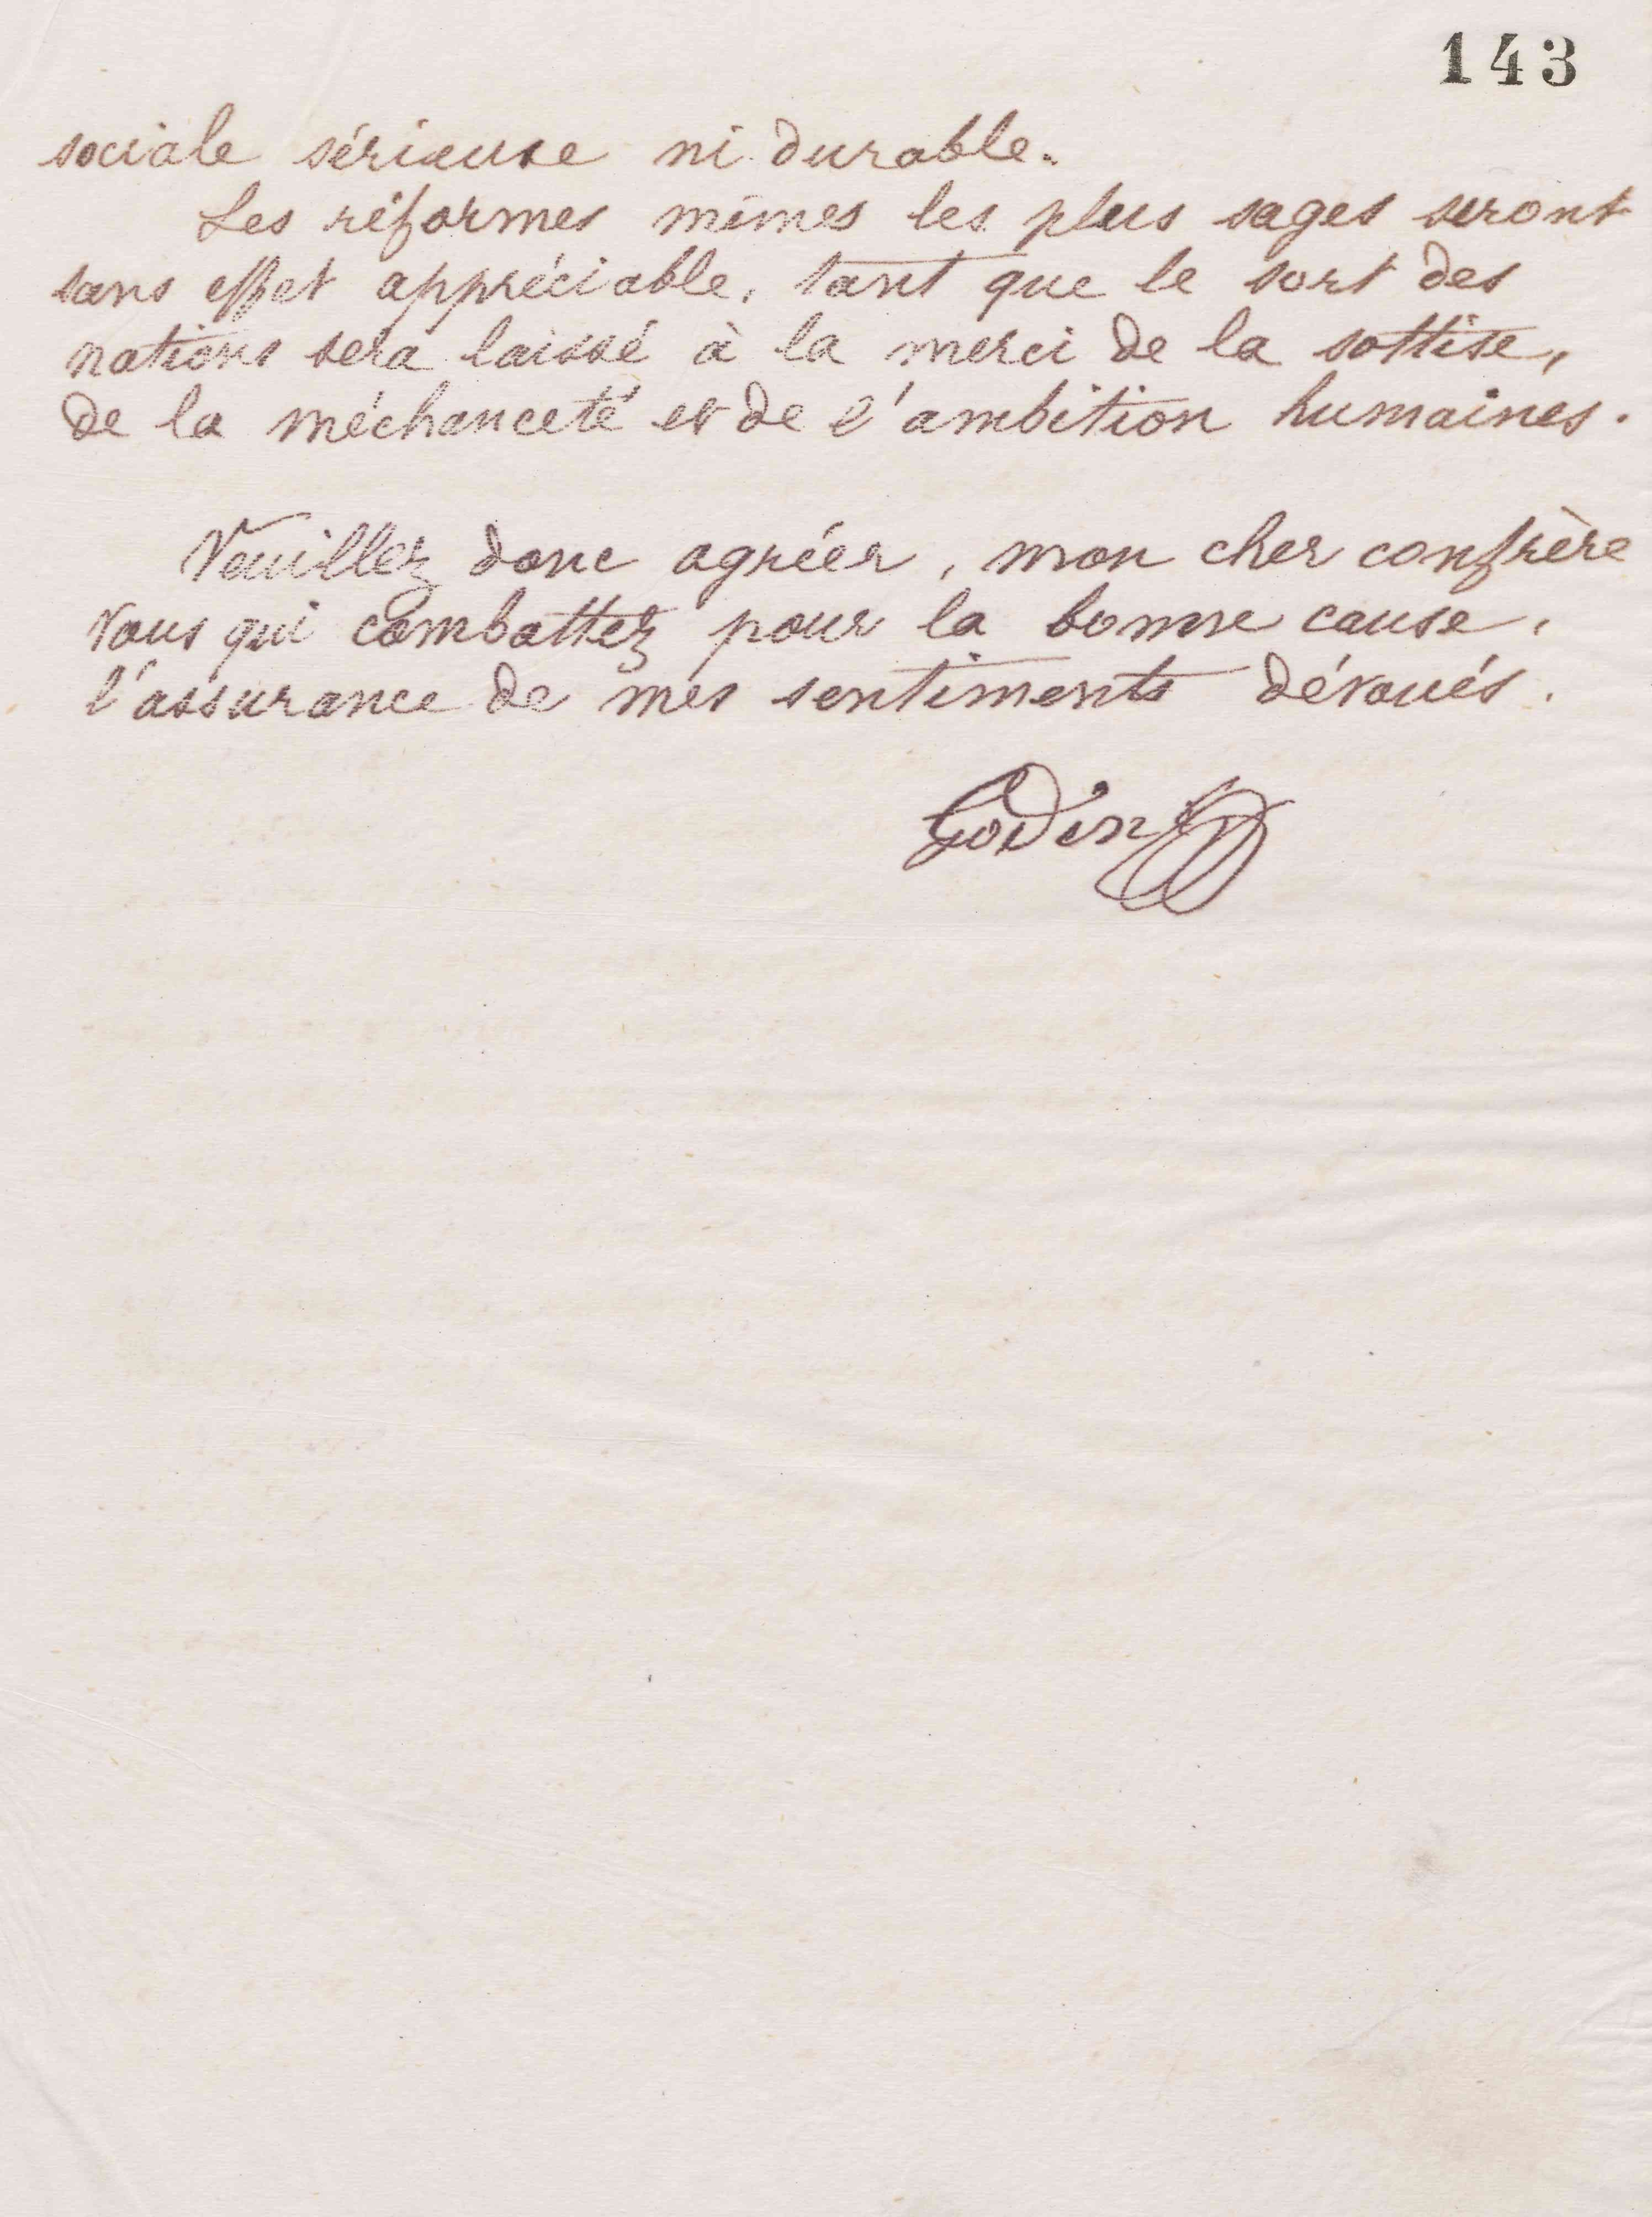 143
sociale sérieuse ni durable.
Les réformes mêmes les plus sages seront
sans effet appréciable, tant que le sort des
nations sera laissé à la merci de la sottise,
de la méchanceté et de l'ambition humaines.
Veuillez donc agréer, mon cher confrère
vous qui combattez pour la bonne cause,
l'assurance de mes sentiments dévoués.
Godin